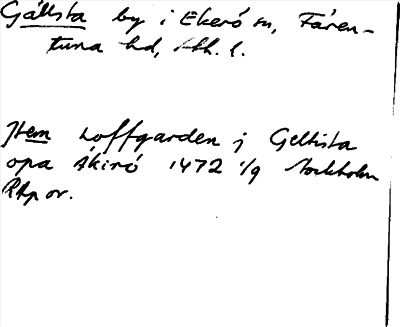 Gällsta by i Ekerö sn, Fären-
tuna hd, Sth. l.
Item Loffgarden j Geltista
opa Äkirö 1472 1/9 Stockholm
RApor.